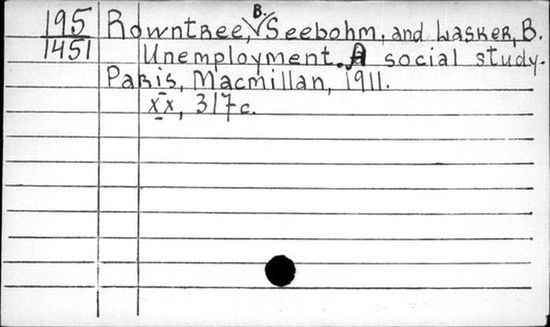 195 Rowntree, B. Seebohm, and Lasker, B.
1451 Unemployment. A social study.
Paris, Macmillan, 1911.
xx, 317c.